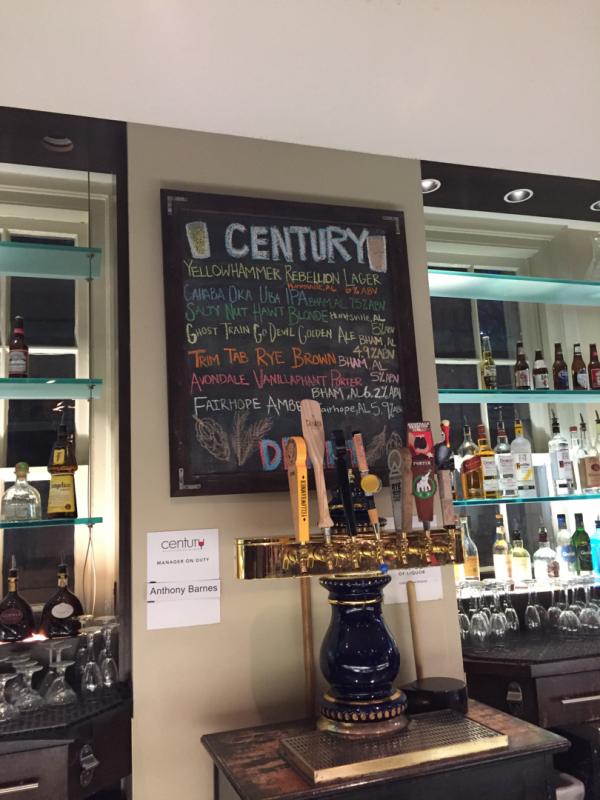 CENTURY
YELLOWHAMMER REBELLION LAGER
HUNTSVILLE, AL 6% ABV
CAHABA OKA UBA IPA BHAM, AL 7.5% ABV
SALTY NUT HAWT BLONDE HUNTSVILLE, AL
5% ABV
GHOST TRAIN GO DEVIL GOLDEN ALE BHAM AL
4.9% ABV
TRIM TAB RYE BROWN BHAM AL
5% ABV
AVONDALE VANILLAPHANT PORTER
BHAM, AL 6.2% ABV
FAIRHOPE AMBE Fairhope, AL 5.9% ABV
century
MANAGER ON DUTY
Anthony Barnes
YELLOWHAMMER
PORTER
OF LIQUOR